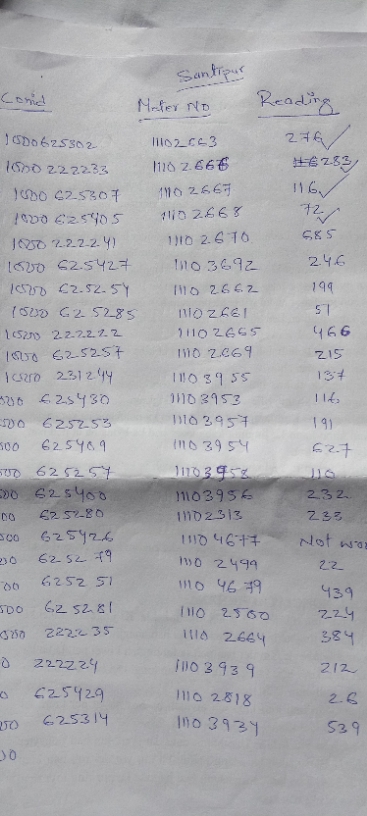 Santipur
Conid Meter No Reading
10500625302 11102663 276
10500 222233 11102666 283
10500 625307 11102667 116
10500 625405 11102668 72
10500 222241 11102670 685
10500 625427 11103692 246
10500 625254 11102662 199
10500 625285 11102661 51
10500 222222 11102665 466
10500 625257 11102669 215
10500 231244 11103955 137
500 625430 11103953 116
500 625253 11103957 191
500 625409 11103954 627
500 625257 11103958 110
500 625400 11103956 232
00 625280 11102313 233
500 625426 11104677 Not
00 625279 1110 2499 22
00 625251 1110 4679 439
500 625281 1110 2500 224
0500 222235 1110 2664 384
0 222224 11103939 212
0 625429 1110 2818 2.6
500 625314 1110 3934 539
00